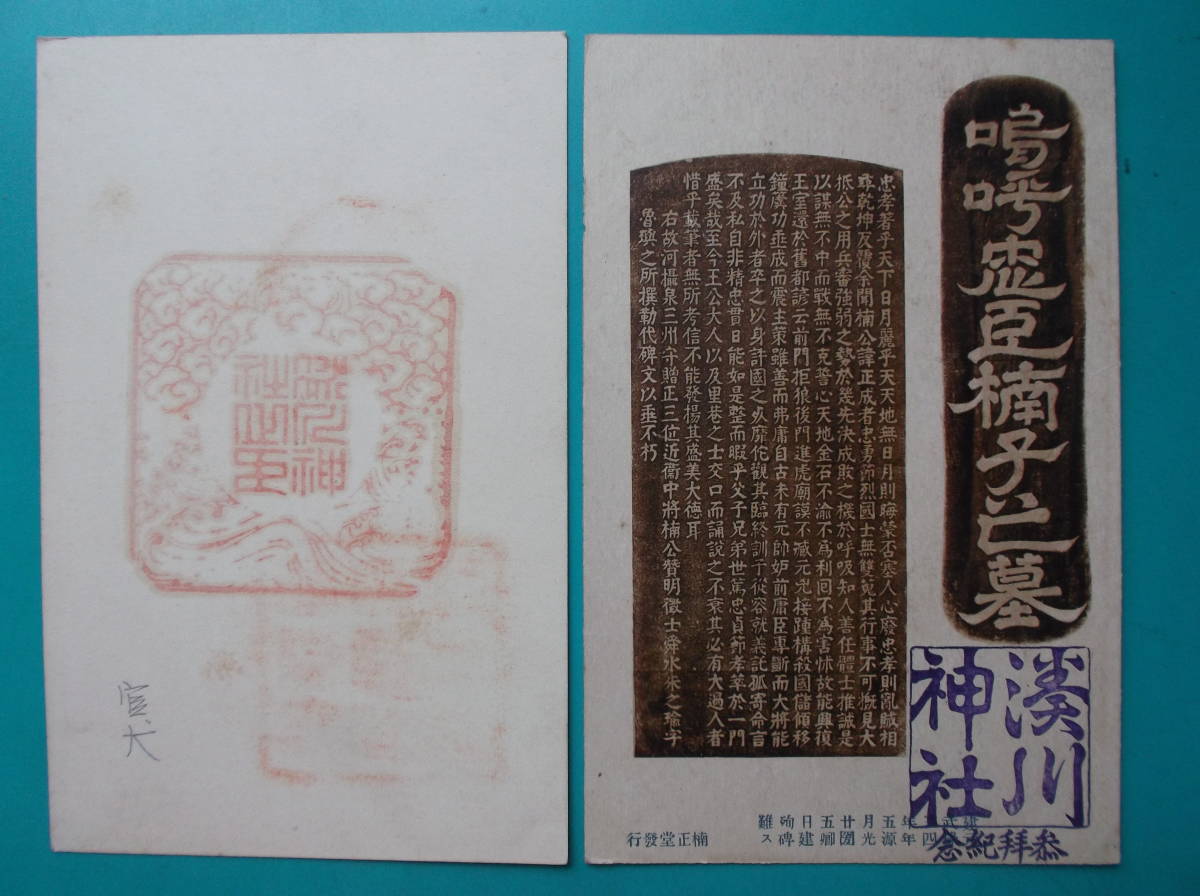 湊川神
社之印
官大
嗚呼忠臣楠子之墓
忠孝著乎天下日月麗乎天天地無日月則晦蒙否塞人心廢忠孝則亂賊相
尋乾坤反覆余聞楠公諱正成者忠勇節烈國士無雙蒐其行事不可概見大
抵公之用兵審強弱之勢於幾先決成敗之機於呼吸知人善任體士推誠是
以謀無不中而戰無不克誓心天地金石不渝不為利回不為害怵故能興復
王室還於舊都諺云前門拒狼後門進虎廟謨不臧元兇接踵構殺國儲傾移
鐘簴功垂成而震主策雖善而弗庸自古未有元帥妒前庸臣專斷而大將能
立功於外者卒之以身許國之死靡佗觀其臨終訓子從容就義託孤寄命言
不及私自非精忠貫日能如是整而暇乎父子兄弟世篤忠貞節孝萃於一門
盛矣哉至今王公大人以及里巷之士交口而誦說之不衰其必有大過人者
惜乎載筆者無所考信不能發揚其盛美大德耳
右故河攝泉三州守贈正三位近衛中將楠公贊明徵士舜水朱之瑜字
魯璵之所撰勒代碑文以垂不朽
湊川
神社
參拜紀念
年五月廿五日殉難
四年源光圀卿建碑ス
楠正堂發行